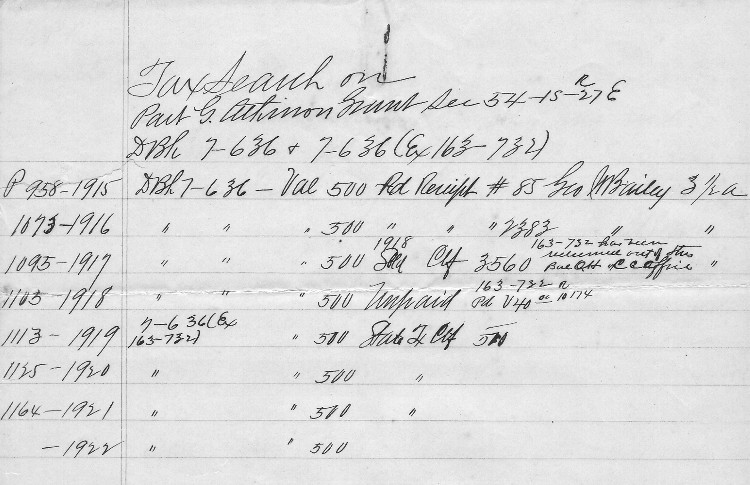 Tax Search on
Part G. Atkinson Grant Sec 54-15-27E
DBh 7-636 + 7-636 (Ex 163-732)
P 958-1915 DBh 7-636 - Val 500 Pd Receipt # 85 Geo Bailey 3 1/2 a
1073-1916 " " " 500 " " " 2383 " "
1095-1917 " " " 500 1918 Clf 3560 163-732 has been redeemed out of this "
1103-1918 " " " 500 Unpaid 163-732
1113-1919 7-636 (Ex 163-732) " 500 State Tx Clf 500
1125-1920 " " 500 "
1164-1921 " " 500 "
-1922 " " 500